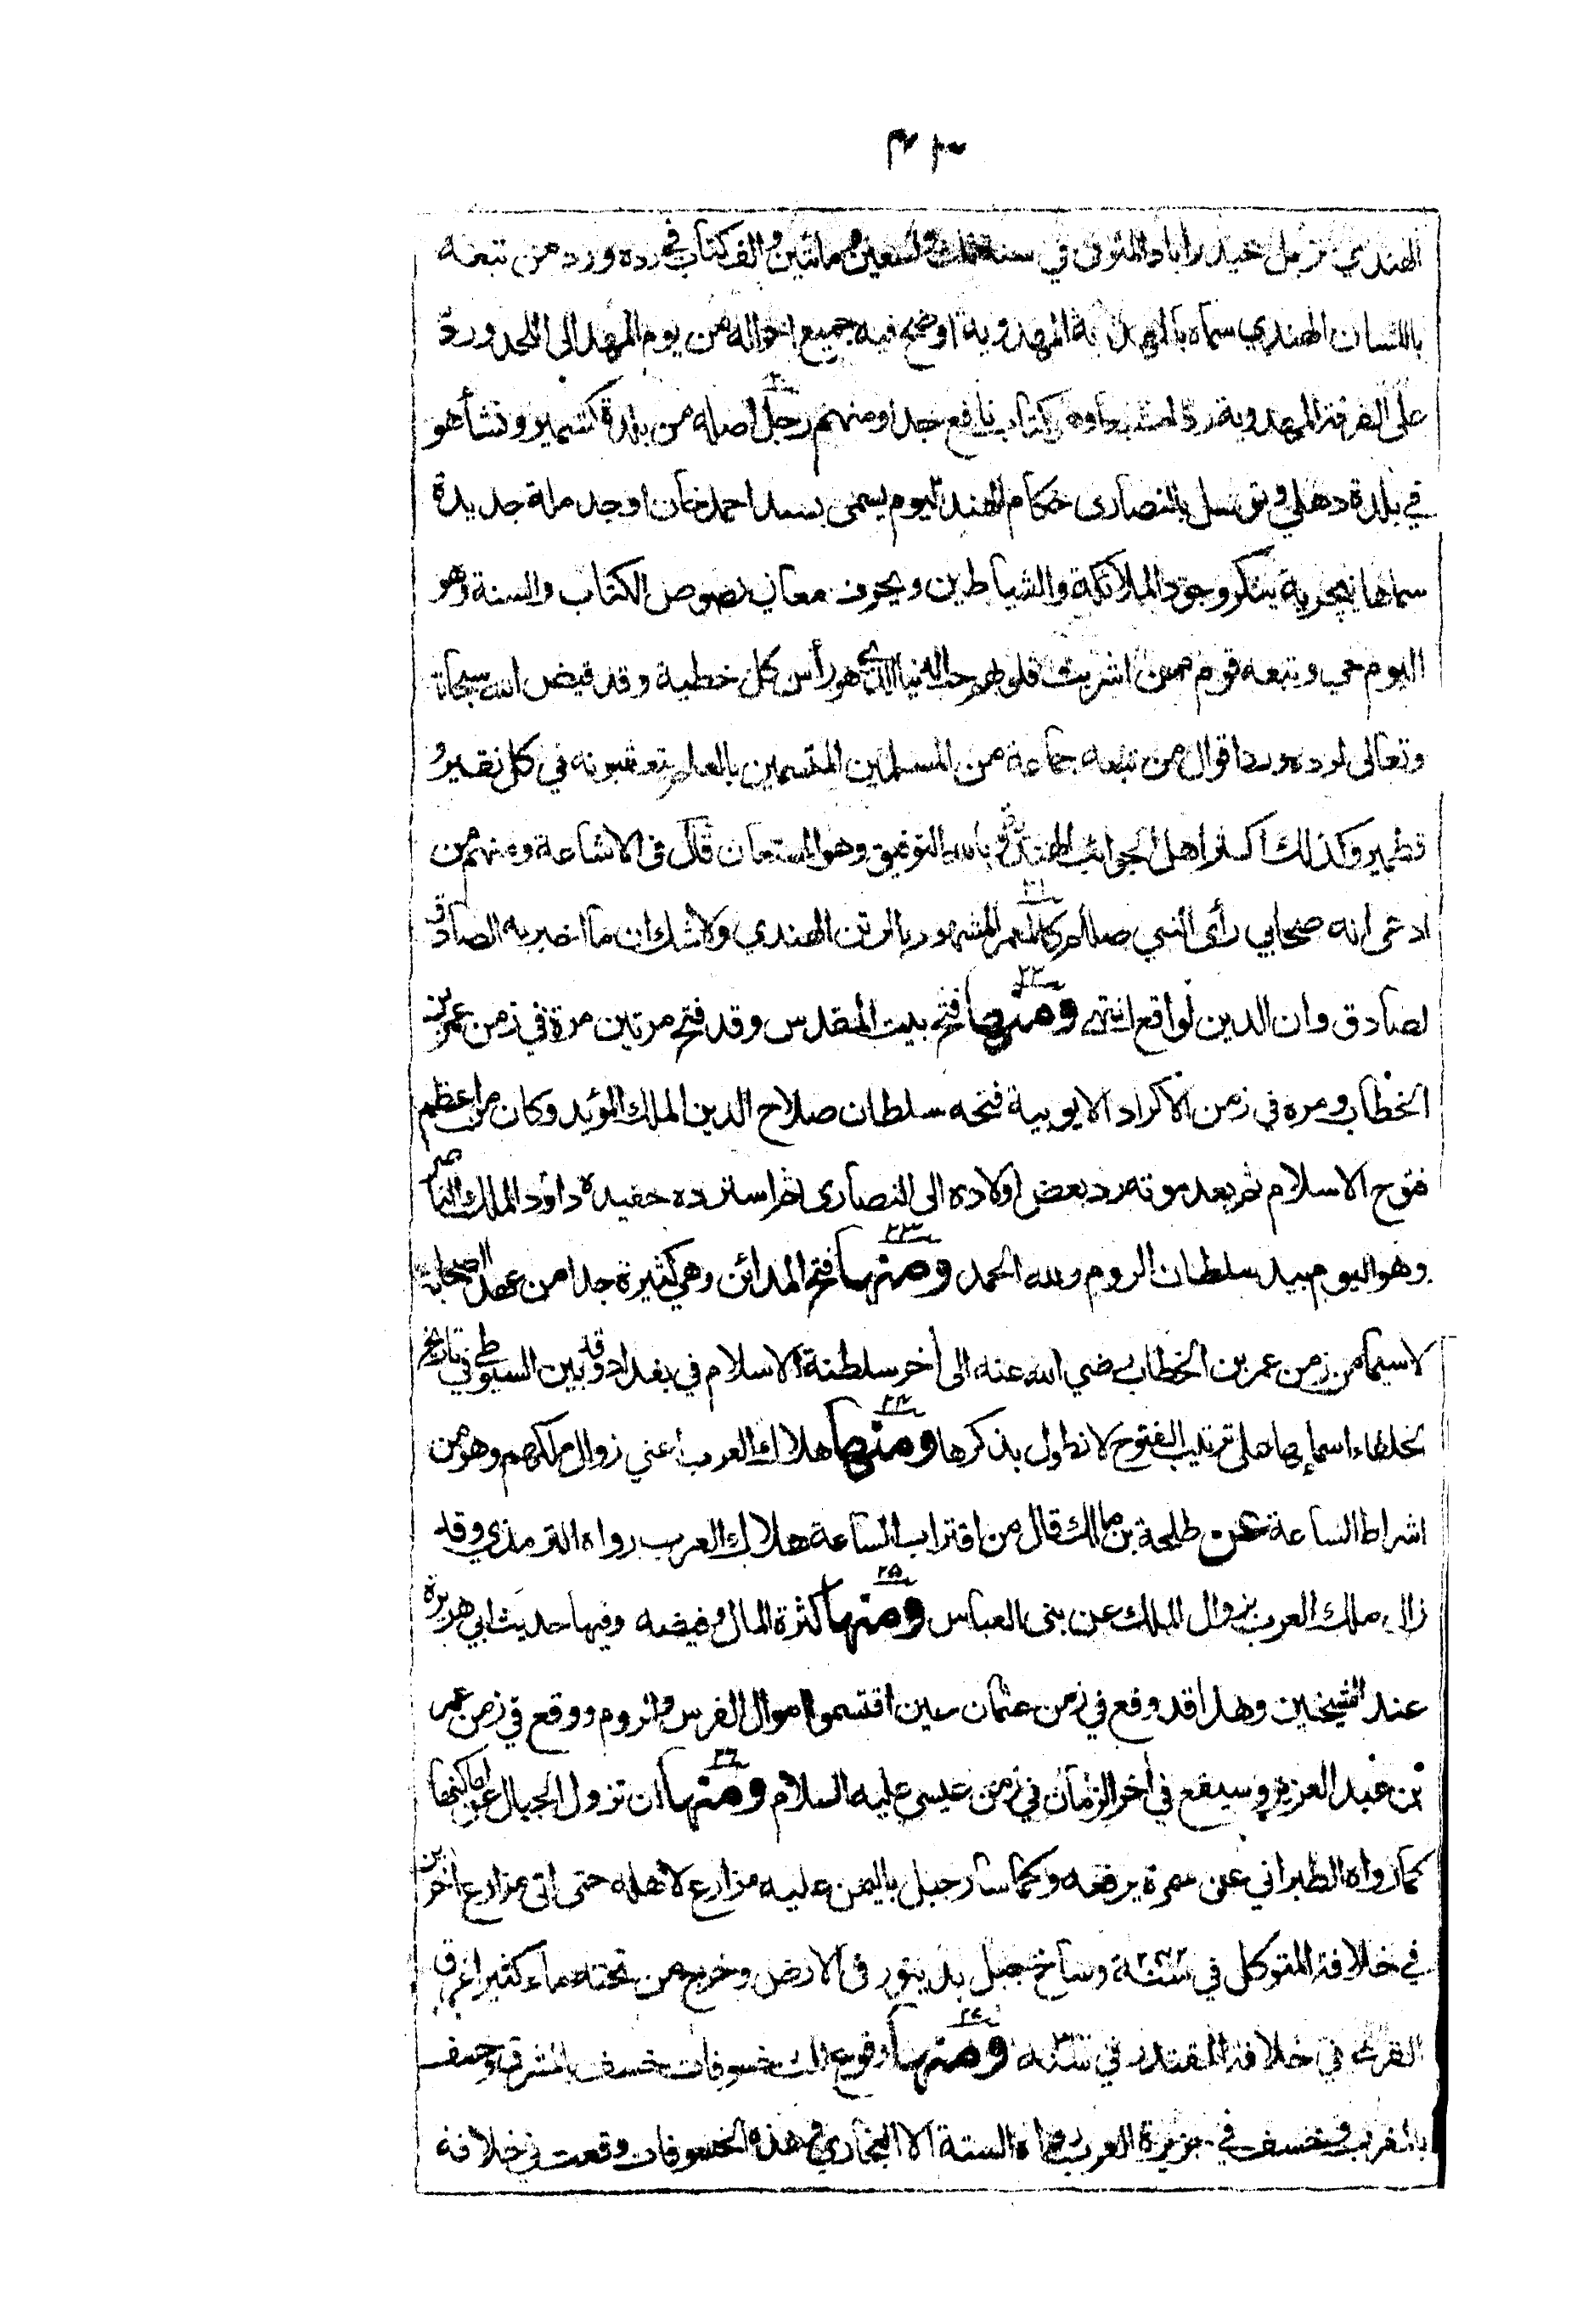 الهندي نزيل حيدراباد المتوفى في سنة وتسعين ومائتين والف كتاب في رده ورد من تبعه
باللسان الهندي سماه بالهدية المهدوية اوضح فيه جميع احواله من يوم المهد الى اللحد ورد
على الفرقة المهدوية ردا وهو كتاب نافع جدا ومنهم رجل اصله من بلدة كشمير ونشأ هو
٢٠
في بلدة دهلي وتوسل بالنصارى حكام الهند اليوم يسمى بسيد احمد خان اوجد ملة جديدة
سماها نيچرية ينكر وجود الملائكة والشياطين ويحرف معاني نصوص الكتاب والسنة وهو
اليوم حي وتبعه قوم ممن اشربت قلوبهم حب الدنيا الذي هو رأس كل خطية وقد قيض الله سبحانه
وتعالى لرده ورد اقوال من تبعه جماعة من المسلمين المتسمين بالعلم يتعقبونه في كل نقير و
قطمير وكذلك اكثر اهل الجوائب الهندية وبالله التوفيق وهو المستعان قال في الاشاعة ومنهم من
٢١
ادعى انه صحابي رأى النبي صللم كالمعمر المشهور بالرتن الهندي ولا شك ان ما اخبر به الصادق
لصادق وان الدين لواقع انتهى ومنها فتح بيت المقدس وقد فتح مرتين مرة في زمن عمر بن
٢٢
الخطاب ومرة في زمن الاكراد الايوبية فتحه سلطان صلاح الدين الملك المؤيد وكان من اعظم
فتوح الاسلام ثم بعد موته رد بعض اولاده الى النصارى ثم استرده حفيده داؤد الملك الناصر
وهو اليوم بيد سلطان الروم ولله الحمد ومنها فتح المدائن وهي كثيرة جدا من عهد الصحابة
٢٣
لاسيما من زمن عمر بن الخطاب رضي الله عنه الى أخر سلطنة الاسلام في بغداد وقد بين السيوطي في تاريخ
الخلفاء اسمائها على ترتيب الفتوح لا نطول بذكرها ومنها هلاك العرب اعني زوال ملكهم وهو من
٢٤
اشراط الساعة عن طلحة بن مالك قال من اقتراب الساعة هلاك العرب رواه الترمذي وقد
زال ملك العرب بزوال الملك عن بني العباس ومنها كثرة المال وفيضه وفيها حديث ابي هريرة
٢٥
عند الشيخين وهذا قد وقع في زمن عثمان حين اقتسموا اموال الفرس والروم ووقع في زمن عمر
بن عبد العزيز وسيقع في أخر الزمان في زمن عيسى عليه السلام ومنها ان تزول الجبال عن اماكنها
٢٦
كما رواه الطبراني عن سمرة يرفعه وكما سار جبل باليمن عليه مزارع لاهله حتى اتى مزارع أخرين
في خلافة المتوكل في سنة وساخ جبل بدينور في الارض وخرج من تحته ماء كثير اغرق
القرى في خلافة المقتدر في سنة ومنها وقوع ثلث خسوفات خسف بالمشرق وخسف
٢٧
بالمغرب وخسف في جزيرة العرب رواه الستة الا البخاري وهذه الخسوفات وقعت في خلافة